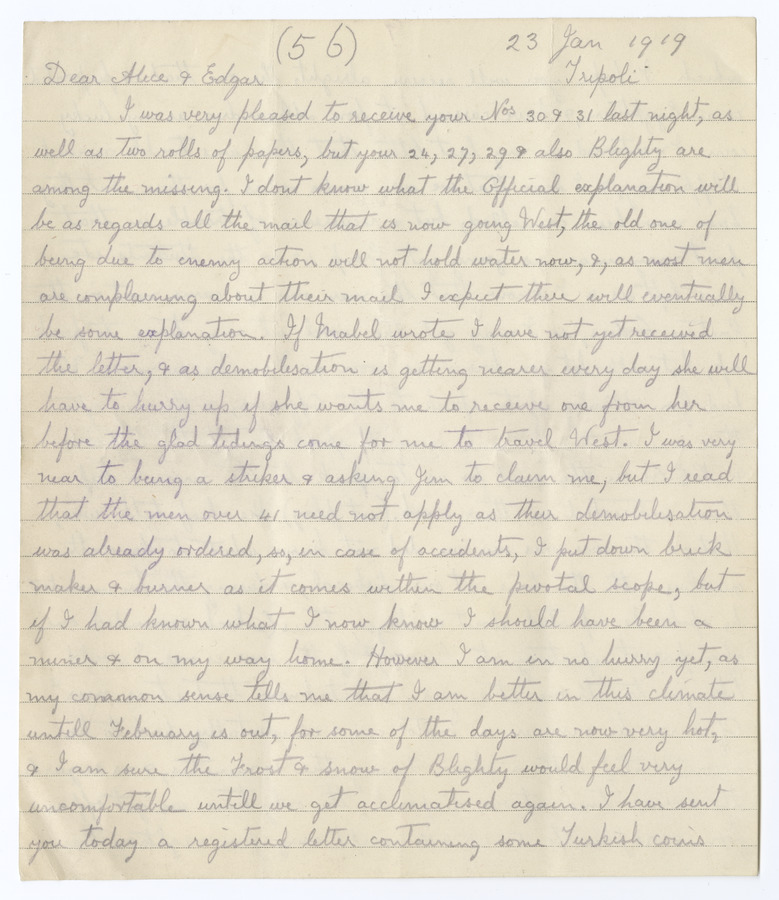 (56)
23 Jan 1919
Dear Alice & Edgar
Tripoli
I was very pleased to receive your Nos 30 & 31 last night, as
well as two rolls of papers, but your 24, 27, 29 & also Blighty are
among the missing. I dont know what the Official explanation will
be as regards all the mail that is now going West, the old one of
being due to enemy action will not hold water now, &, as most men
are complaining about their mail I expect there will eventually
be some explanation. If Mabel wrote I have not yet received
the letter, & as demobilisation is getting nearer every day she will
have to hurry up if she wants me to receive one from her
before the glad tidings come for me to travel West. I was very
near to being a striker & asking Jim to claim me, but I read
that the men over 41 need not apply as their demobilisation
was already ordered, so, in case of accidents, I put down brick
maker & burner as it comes within the pivotal scope, but
if I had known what I now know I should have been a
miner & on my way home. However I am in no hurry yet, as
my common sense tells me that I am better in this climate
untill February is out, for some of the days are now very hot,
& I am sure the Frost & snow of Blighty would feel very
uncomfortable untill we get acclimatised again. I have sent
you today a registered letter containing some Turkish coins